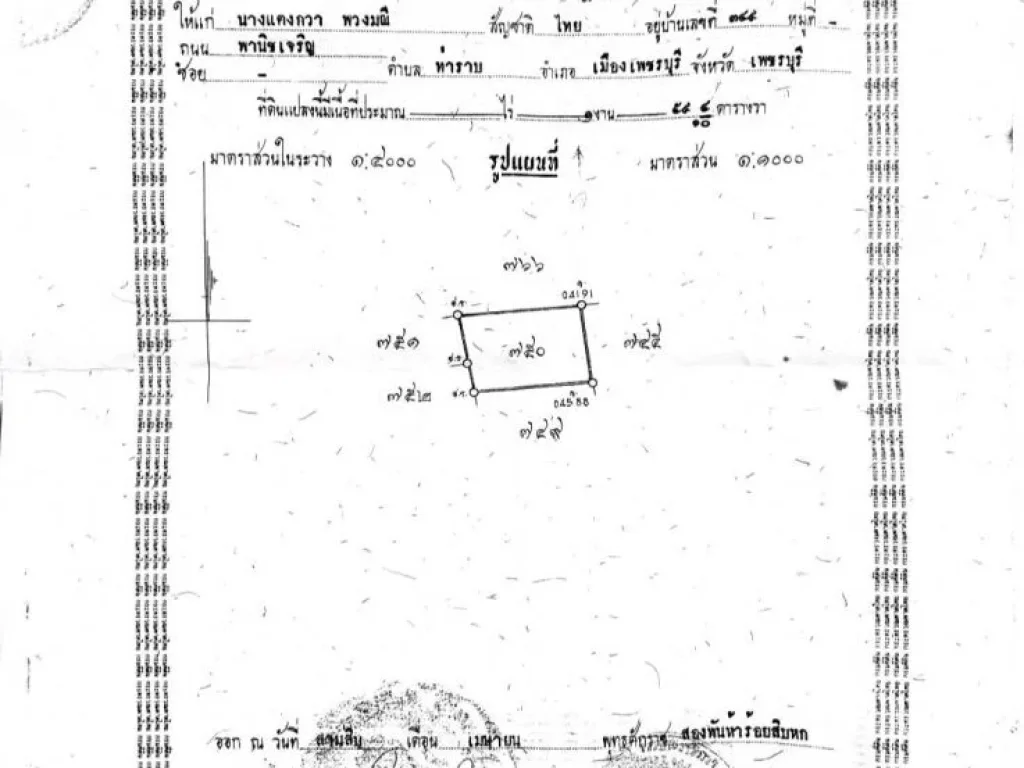 ให้แก่ นางแตงกวา พวงมณี สัญชาติ ไทย อยู่บ้านเลขที่ ๓๔๕ หมู่ที่ -
ถนน พานิชเจริญ
ซอย - ตำบล ท่าราบ อำเภอ เมืองเพชรบุรี จังหวัด เพชรบุรี
ที่ดินแปลงนี้มีเนื้อที่ประมาณ ไร่ ๑ งาน ๕๕ ๔/๑๐ ตารางวา
มาตราส่วนในระวาง ๑:๔๐๐๐ รูปแผนที่ มาตราส่วน ๑:๑๐๐๐
๗๖๖
04191
๗๕๑ ๗๕๐ ๗๔๕
๗๕๒
04588
๗๔๙
ออก ณ วันที่ สามสิบ เดือน เมษายน พุทธศักราช สองพันห้าร้อยสิบหก